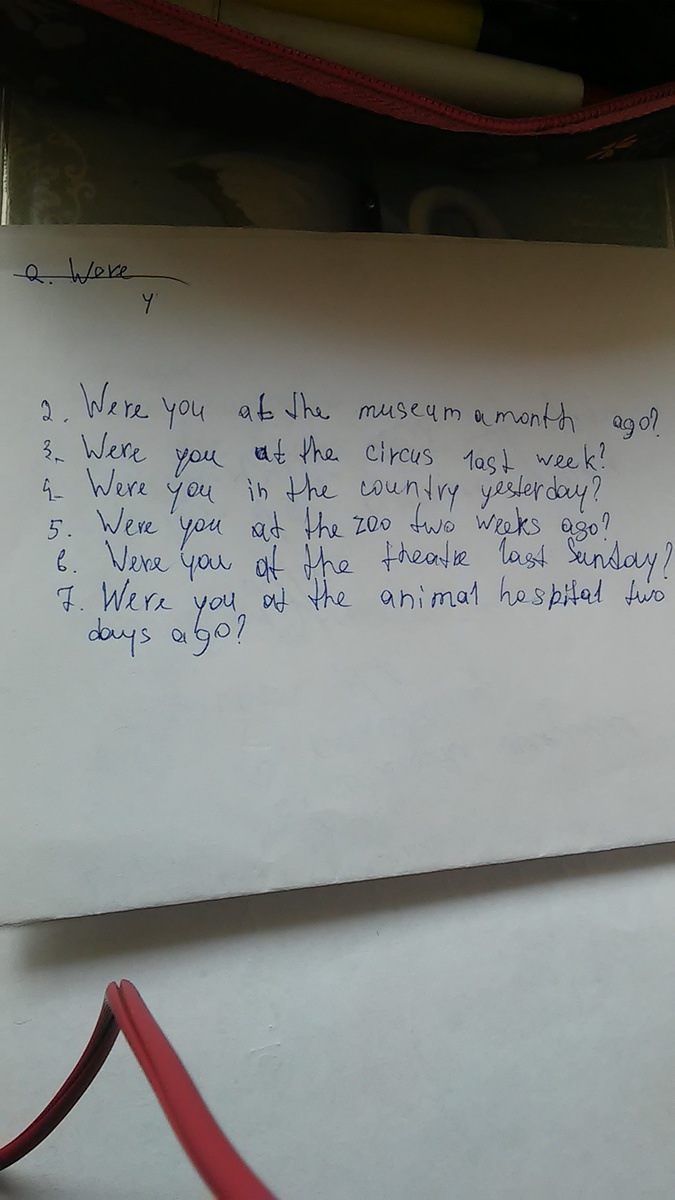 2. Were
y
2. Were you at the museum a month ago?
3. Were you at the circus last week?
4. Were you in the country yesterday?
5. Were you at the zoo two weeks ago?
6. Were you at the theatre last Sunday?
7. Were you at the animal hospital two
days ago?